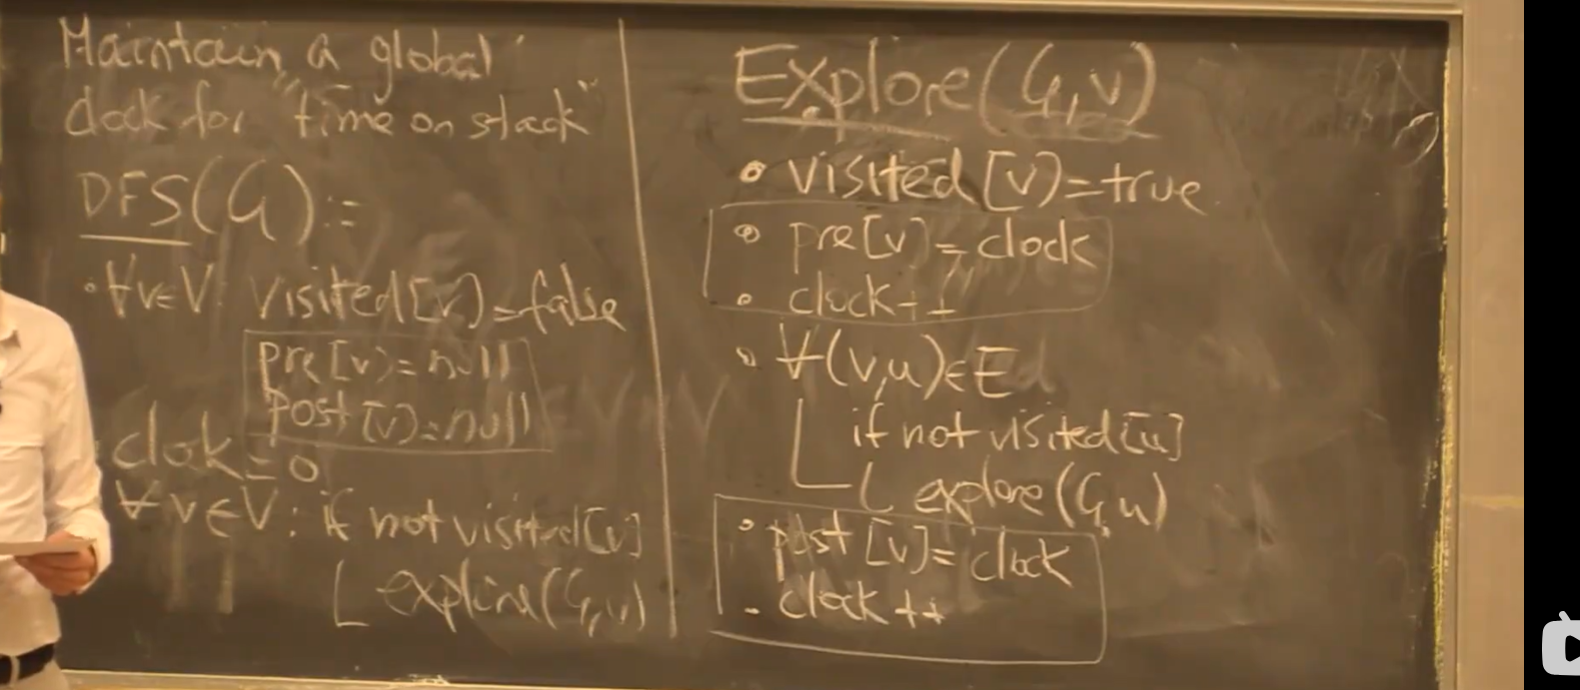 Maintain a global
clock for "time on stack"
DFS(G):=
• ∀v∈V: visited[v]=false
pre[v]=null
post[v]=null
• clok=0
∀v∈V: if not visited[v]
explore(G,v)
Explore(G,v)
• visited[v]=true
• pre[v]=clock
• clock++
• ∀(v,u)∈E
if not visited[u]
explore(G,u)
• post[v]=clock
• clock++